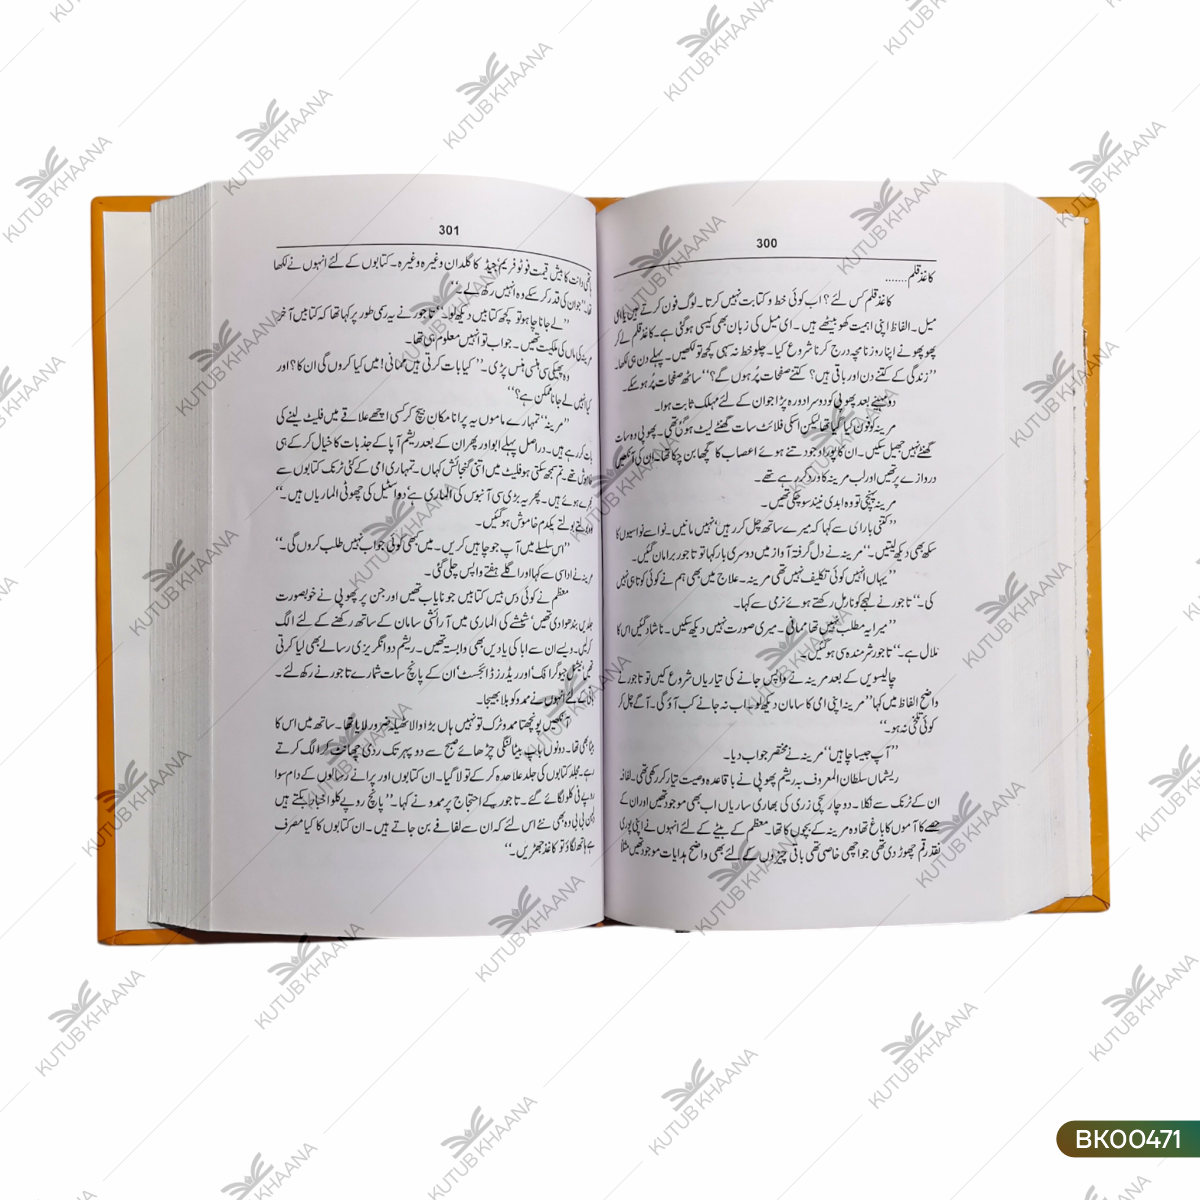 300
کاغذ قلم.......
کاغذ قلم کس لئے؟ اب کوئی خط و کتابت نہیں کرتا۔ لوگ فون کرتے ہیں یا ای
میل۔ الفاظ اپنی اہمیت کھو بیٹھے ہیں۔ ای میل کی زبان بھی کیسی ہوگئی ہے۔ کاغذ قلم لے کر
پھوپھو نے اپنا روزنامچہ درج کرنا شروع کیا۔ چلو خط نہ سہی کچھ تو لکھیں۔ پہلے دن ہی لکھا۔
’’زندگی کے کتنے دن اور باقی ہیں؟ کتنے صفحات پُر ہوں گے؟‘‘ ساٹھ صفحات پُر ہو سکے۔
دو مہینے بعد پھوپی کو دوسرا دورہ پڑا جو ان کے لئے مہلک ثابت ہوا۔
مرینہ کو فون کیا گیا تھا لیکن اسکی فلائٹ سات گھنٹے لیٹ ہوگئی تھی۔ پھوپی دو سات
گھنٹے نہیں جھیل سکیں۔ ان کا پورا وجود تنے ہوئے اعصاب کا گچھا بن چکا تھا۔ ان کی آنکھیں
دروازے پر تھیں اور لب مرینہ کا ورد کر رہے تھے۔
مرینہ پہنچی تو وہ ابدی نیند سو چکی تھیں۔
’’کتنی بار ای سے کہا کہ میرے ساتھ چل کر رہیں‘ نہیں مانیں۔ نواسے نواسیوں کا
سکھ بھی دیکھ لیتیں۔‘‘ مرینہ نے دل گرفتہ آواز میں دوسری بار کہا تو تاجور برا مان گئیں۔
’’یہاں انہیں کوئی تکلیف نہیں تھی مرینہ۔ علاج میں بھی ہم نے کوئی کوتاہی نہیں
کی۔‘‘ تاجور نے لہجے کو نارمل رکھتے ہوئے نرمی سے کہا۔
’’میرا یہ مطلب نہیں تھا ممانی۔ میری صورت نہیں دیکھ سکیں۔ ناشاد گئیں اس کا
ملال ہے۔‘‘ تاجور شرمندہ سی ہو گئیں۔
چالیسویں کے بعد مرینہ نے واپس جانے کی تیاریاں شروع کیں تو تاجور نے
واضح الفاظ میں کہا ’’مرینہ اپنی امی کا سامان دیکھ لو۔ اب نہ جانے کب آؤ گی۔ آگے چل کر
کوئی تلخی نہ ہو۔‘‘
’’آپ جیسا چاہیں‘‘ مرینہ نے مختصر جواب دیا۔
ریشماں سلطان المعروف بہ ریشم پھوپی نے باقاعدہ وصیت تیار کر رکھی تھی۔ لفافہ
ان کے ٹرنک سے نکلا۔ دو چار سچی زری کی بھاری ساریاں اب بھی موجود تھیں اور ان کے
حصے کا آموں کا باغ تھا وہ مرینہ کے بچوں کا تھا۔ معظم کے بیٹے کے لئے انہوں نے اپنی پوری
نقد رقم چھوڑ دی تھی جو اچھی خاصی تھی باقی چیزوں کے لئے بھی واضح ہدایات موجود تھیں مثلاً
301
ہاتھی دانت کا بیش قیمت فوٹو فریم‘ جیڈ کا گلدان وغیرہ وغیرہ۔ کتابوں کے لئے انہوں نے لکھا
تھا۔ ’’جو ان کی قدر کر سکے وہ انہیں رکھ لے۔‘‘
’’لے جانا چاہو تو کچھ کتابیں دیکھ لو۔‘‘ تاجور نے یہ رسمی طور پر کہا تھا کہ کتابیں آخر
مرینہ کی ماں کی ملکیت تھیں۔ جواب تو انہیں معلوم ہی تھا۔
وہ پھیکی سی ہنسی ہنس پڑی۔ ’’کیا بات کرتی ہیں ممانی! میں کیا کروں گی ان کا؟ اور
کیا انہیں لے جانا ممکن ہے؟‘‘
’’مرینہ‘‘ تمہارے ماموں یہ پرانا مکان بیچ کر کسی اچھے علاقے میں فلیٹ لینے کی
بات کر رہے ہیں۔ دراصل پہلے ابو اور پھر ان کے بعد ریشم آپا کے جذبات کا خیال کر کے ہی
خاموش تھے۔ تم سمجھ سکتی ہو فلیٹ میں اتنی گنجائش کہاں۔ تمہاری امی کے کئی ٹرنک کتابوں سے
بھرے ہوئے ہیں۔ پھر یہ بڑی سی آبنوس کی الماری ہے‘ دو اسٹیل کی چھوٹی الماریاں ہیں۔‘‘
وہ بولتے بولتے یکدم خاموش ہو گئیں۔
’’اس سلسلے میں آپ جو چاہیں کریں۔ میں بھی کوئی جواب نہیں طلب کروں گی۔‘‘
مرینہ نے اداسی سے کہا اور اگلے ہفتے واپس چلی گئی۔
معظم نے کوئی دس بیس کتابیں جو نایاب تھیں اور جن پر پھوپی نے خوبصورت
جلدیں بندھوا دی تھیں‘ شیشے کی الماری میں آرائشی سامان کے ساتھ رکھنے کے لئے الگ
کر لیں۔ ویسے ان سے ابا کی یادیں بھی وابستہ تھیں۔ ریشم دو انگریزی رسالے بھی لیا کرتی
تھیں‘ نیشنل جیوگرافک‘ اور ریڈرز ڈائجسٹ‘ ان کے پانچ سات شمارے تاجور نے رکھ لئے۔
باقی کے لئے انہوں نے ممدو کو بلا بھیجا۔
آنکھیں پونچھتا ممدو ٹرک تو نہیں ہاں بڑا والا ٹھیلہ ضرور لایا تھا۔ ساتھ میں اس کا
بیٹا بھی تھا۔ دونوں باپ بیٹا لنگی چڑھائے صبح سے دو پہر تک ردی چھانٹ کر الگ کرتے
رہے۔ مجلد کتابوں کی جلد علاحدہ کر کے تولا گیا۔ ان کتابوں اور پرانے رسالوں کے دام سوا
روپے فی کلو لگائے گئے۔ تاجور کے احتجاج پر ممدو نے کہا۔ ’’پانچ روپے کلو اخبار بکتے ہیں
لیکن بی بی وہ بھی نئے اس لئے کہ ان سے لفافے بن جاتے ہیں۔ ان کتابوں کا کیا مصرف
ہے ہاتھ لگاؤ تو کاغذ جھڑیں۔‘‘
KUTUB KHAANA
BK00471